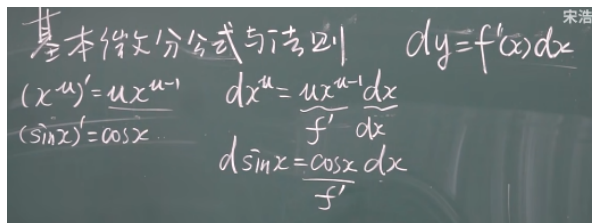 宋浩
基本微分公式与法则 dy=f'(x)dx
(x^u)'=ux^{u-1} dx^u=ux^{u-1}dx
f' dx
(sinx)'=cosx.
dsinx=cosx dx
f'